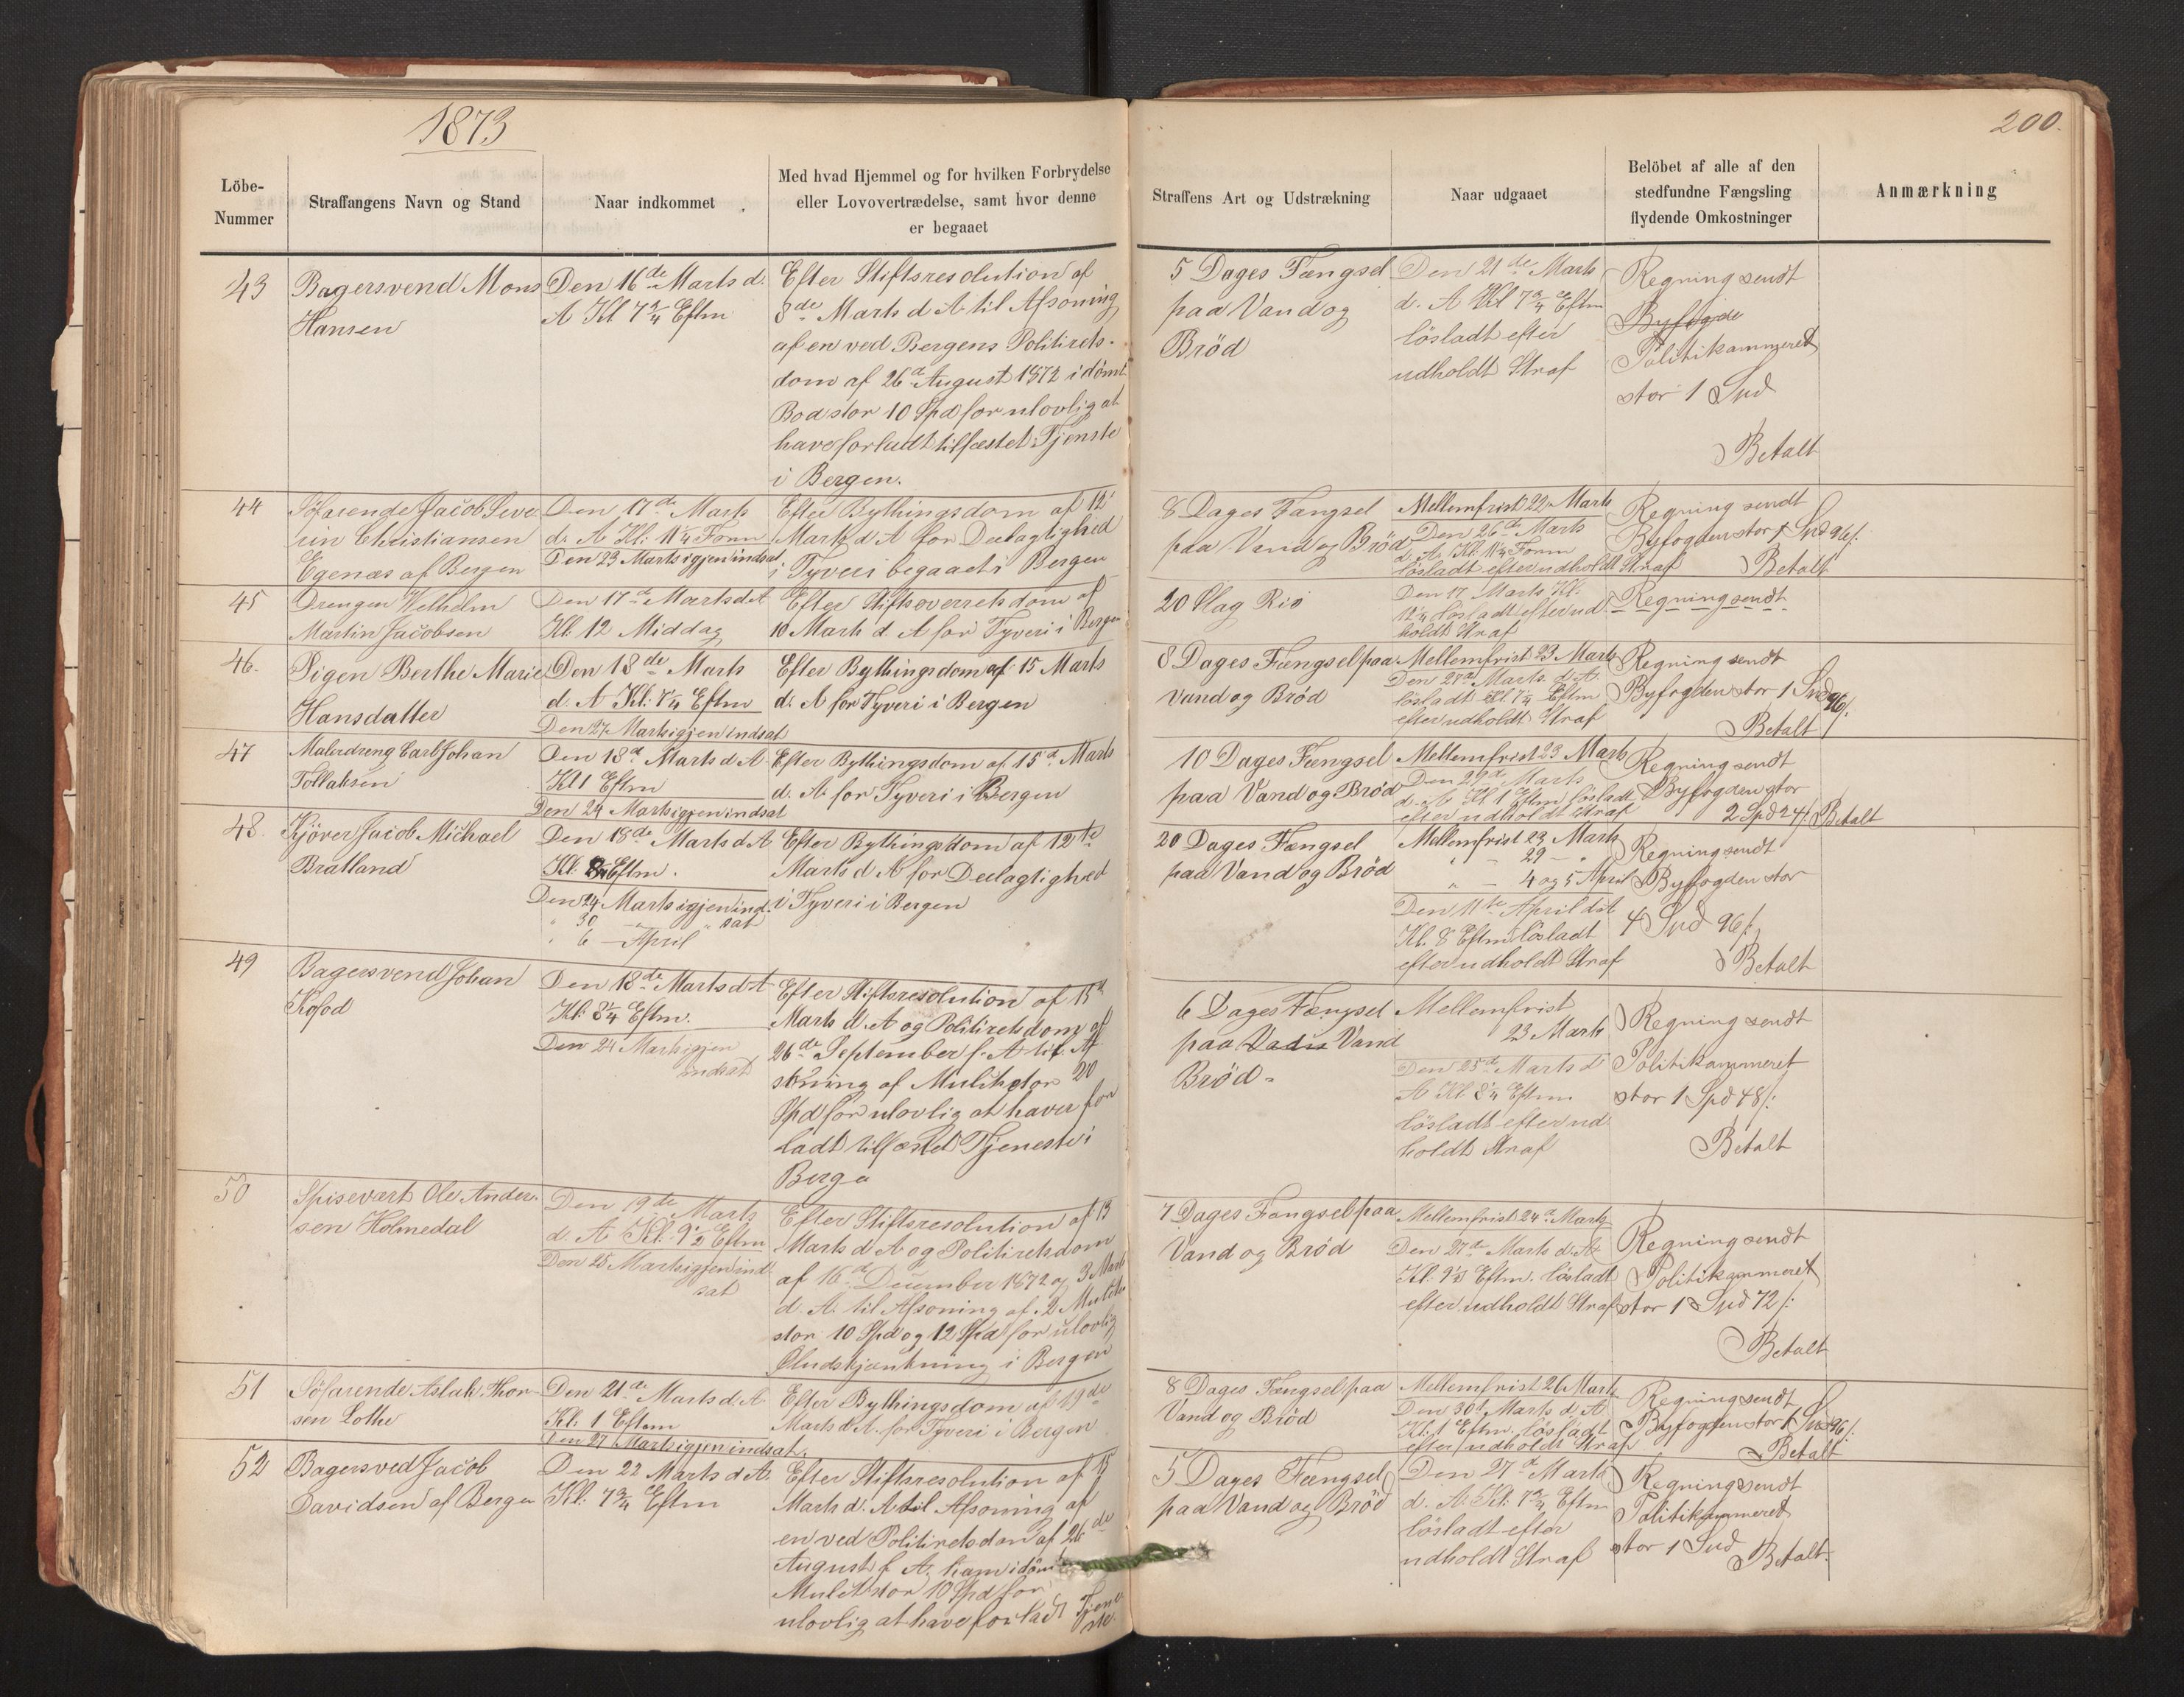 1873
200.
Löbe-
Nummer
Straffangens Navn og Stand
Naar indkommet
Med hvad Hjemmel og for hvilken Forbrydelse
eller Lovovertrædelse, samt hvor denne
er begaaet
Straffens Art og Udstrækning
Naar udgaaet
Belöbet af alle af den
stedfundne Fængsling
flydende Omkostninger
Anmærkning
43
Bagersvend Mons
Hansen
Den 16de Marts d.
A Kl 7 3/4 Eftm
Efter Stiftsresolution af
8de Marts d A til Afsoning
af en ved Bergens Politirets-
dom af 26d August 1872 idømt
Bod stor 10 Spd for ulovlig at
have forladt tilfæstet Tjenste
i Bergen.
5 Dages Fængsel
paa Vand og
Bröd
Den 21de Marts
d. A Kl 7 3/4 Eftm
lösladt efter
udholdt Straf
Regning sendt
Byfogde
Politikammeret
stor 1 Spd
Betalt
44
Söfarende Jacob Seve
rin Christiansen
Egenæs af Bergen
Den 17de Marts
d. A Kl: 11 1/4 Form
Den 23 Marts igjen indsat
Efter Bythingsdom af 12'
Marts d A for Deelagtighed
i Tyveri begaaet i Bergen
8 Dages Fængsel
paa Vand og Bröd
Mellemfrist 22 Marts
Den 26de Marts
d. A. Kl. 11 1/4 Form
lösladt efter udholdt Straf
Regning sendt
Byfogden stor 1 Spd 96 /:
Betalt
45
Drengen Wilhelm
Martin Jacobsen
Den 17de Marts d A
Kl: 12 Middag
Efter Stiftsoverretsdom af
10 Marts d A for Tyveri i Bergen
20 Slag Ris
Den 17 Marts Kl.
12 1/4 lösladt efter ud
holdt Straf
Regning sendt
46.
Pigen Berthe Marie
Hansdatter
Den 18de Marts
d. A Kl: 7 1/4 Eftm
Den 24 Marts igjen indsat
Efter Bythingsdom af 15 Marts
d. A for Tyveri i Bergen
8 Dages Fængsel paa
Vand og Bröd
Mellemfrist 23 Marts
Den 27d Marts. d. A.
lösladt Kl 7 1/4 Eftm
efter udholdt Straf
Regning sendt
Byfogden stor 1 Spd 96/:
Betalt
47
Malerdreng Carl Johan
Tollaksen
Den 18d Marts d A
Kl 1 Eftm
Den 24 Marts igjen indsat
Efter Bythingsdom af 15d Marts
d. A for Tyveri i Bergen
10 Dages Fængsel
paa Vand og Bröd
Mellemfrist 23 Marts
Den 29d Marts
d. A Kl 1 Eftm lösladt
efter udholdt Straf
Regning sendt
Byfogden stor
2 Spd 24/ Betalt
48.
Kjöver Jacob Michael
Bratland
Den 18de Marts d A
Kl: 8 Eftm.
Den 24 Marts igjen ind.
" 30 — " sat
" 6 — April
Efter Bythingsdom af 12te
Marts d A for Deelagtighed
i Tyveri i Bergen
20 Dages Fængsel
paa Vand og Bröd
Mellemfrist 23 Marts
" — 29 — "
" — 4 og 5 April
Den 11te April d A
Kl. 8 Eftm lösladt
efter udholdt Straf
Regning sendt
Byfogden stor
4 Spd 96 /:
Betalt
49
Bagersvend Johan
Kofod
Den 18de Marts d A
Kl: 8 1/4 Eftm.
Den 24 Marts igjen
indsat
Efter Stiftsresolution af 15d
Marts d. A og Politiretsdom af
26de September f. A til Af
soning af Mulkt stor 20
Spd for ulovlig at haver for
ladt tilfæstet Tjeneste i
Berge
6 Dages Fængsel
paa Vand
Bröd -
Mellemfrist
23 Marts
Den 25de Marts d
A Kl 8 1/4 Eftm
lösladt efter ud
holdt Straf
Regning sendt
Politikammeret
stor 1 Spd 48 /:
Betalt
50
Spisevært Ole Ander-
sen Holmedal
Den 19de Marts
d. A Kl: 9 1/2 Eftm
Den 25 Marts igjen ind
sat
Efter Stiftsresolution af 13
Marts d A og Politiretsdom
af 16d December 1872 og 3 Marts
d. A. til Afsoning af 2 Mulkter
stor 10 Spd og 12 Spd for ulovlig
Öludskjænkning i Bergen
7 Dages Fængsel paa
Vand og Bröd
Mellemfrist 24d Marts
Den 27de Marts d. A
Kl. 9 1/2 Eftm. lösladt
efter udholdt Straf
Regning sendt
Politikammeret
stor 1 Spd 72 /:
Betalt
51
Söfarende Aslak Thor-
sen Lothe
Den 21de Marts d. A
Kl: 1 Eftem
Den 27 Marts igjen indsat.
Efter Bythingsdom af 19de
Marts d A. for Tyveri i Bergen
8 Dages Fængsel paa
Vand og Bröd
Mellemfrist 26 Marts
Den 30t Marts d A
Kl. 1 Eftm lösladt
efter udholdt Straf
Regning sendt
Byfogden stor 1 Spd 96/:
Betalt
52
Bagersved Jacob
Davidsen af Berge
Den 22 Marts d A.
Kl: 7 3/4 Eftm
Efter Stiftsresolution af 15
Marts d. A til Afsoning af
en ved Politiretsdom af 26de
August f A. ham idömt
Mulkt stor 10 Spd for
ulovlig at have forladt Tjene
ste.
5 Dages Fængsel
paa Vand og Bröd
Den 27d Marts
d. A. Kl: 7 3/4 Eftm
lösladt efter
udholdt Straf
Regning sendt
Politikammeret
stor 1 Spd Betalt.